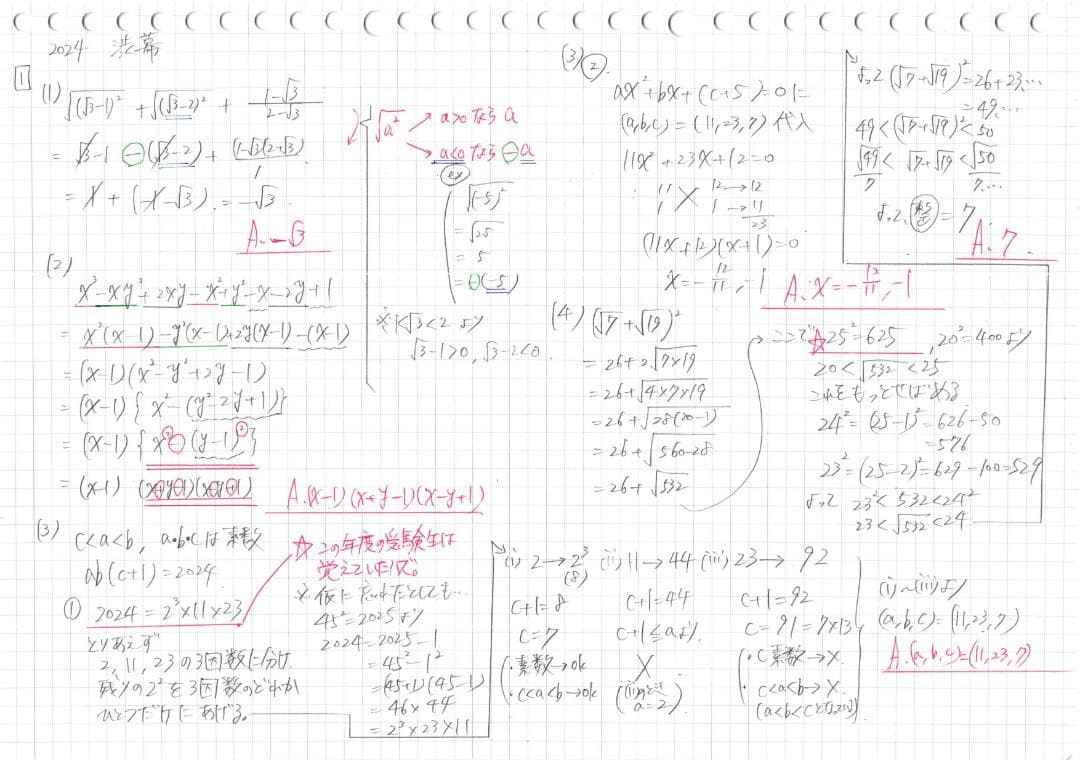 2024 渋幕
1
(1)
√(√3-1)² + √(√3-2)² + (1-√3)/(2-√3)
= √3-1 ⊖(√3-2) + (1-√3)(2+√3)/1
= 1 + (-1-√3) = -√3
A. -√3
√a² → a>0 なら a
→ a<0 なら ⊖a
ex
√(-5)²
= √25
= 5
= ⊖(-5)
※ 1<√3<2 より
√3-1>0, √3-2<0
(2)
x³-xy²+2xy-x²+y²-x-2y+1
= x²(x-1)-y²(x-1)+2y(x-1)-(x-1)
= (x-1)(x²-y²+2y-1)
= (x-1){x²-(y²-2y+1)}
= (x-1){x²⊖(y-1)²}
= (x-1)(x+y-1)(x-y+1)
A.(x-1)(x+y-1)(x-y+1)
(3)
c<a<b, a・b・cは素数
ab(c+1)=2024
① 2024=2³×11×23
とりあえず
2, 11, 23の3因数に分け
残りの2²を3因数のどれか
ひとつだけにあげる。
☆この年度の受験生は
覚えていたハズ。
※仮に忘れたとしても…
45²=2025より
2024=2025-1
=45²-1²
=(45+1)(45-1)
=46×44
=2³×23×11
(i) 2→2³
(8)
c+1=8
c=7
・素数→ok
・c<a<b→ok
(ii) 11→44
c+1=44
c+1≦aより
×
(iii) 23→92
c+1=92
c=91=7×13
・c素数→×
・c<a<b→×
(i)~(iii)より
(a,b,c)=(11,23,7)
A.(a,b,c)=(11,23,7)
(3)②
ax²+bx+(c+5)=0に
(a,b,c)=(11,23,7)代入
11x²+23x+12=0
11 12→12
1 1→11
23
(11x+12)(x+1)=0
x=-12/11, -1
A. x=-12/11, -1
(4) (√7+√19)²
=26+2√7×19
=26+√4×7×19
=26+√28(20-1)
=26+√560-28
=26+√532
ここで☆25²=625, 20²=400より
20<√532<25
これをもっとせばめる
24²=(25-1)²=626-50
=576
23²=(25-2)²=629-100=529
よって 23²<532<24²
23<√532<24
よって(√7+√19)²=26+23,…
=49,…
49<(√7+√19)²<50
√49<√7+√19<√50
7 7,…
よって、整=7
A. 7